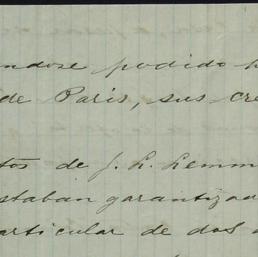 ndose podido
de Paris, sus cre
tos de J. L. Lemm
staban garantizad
articular de dos